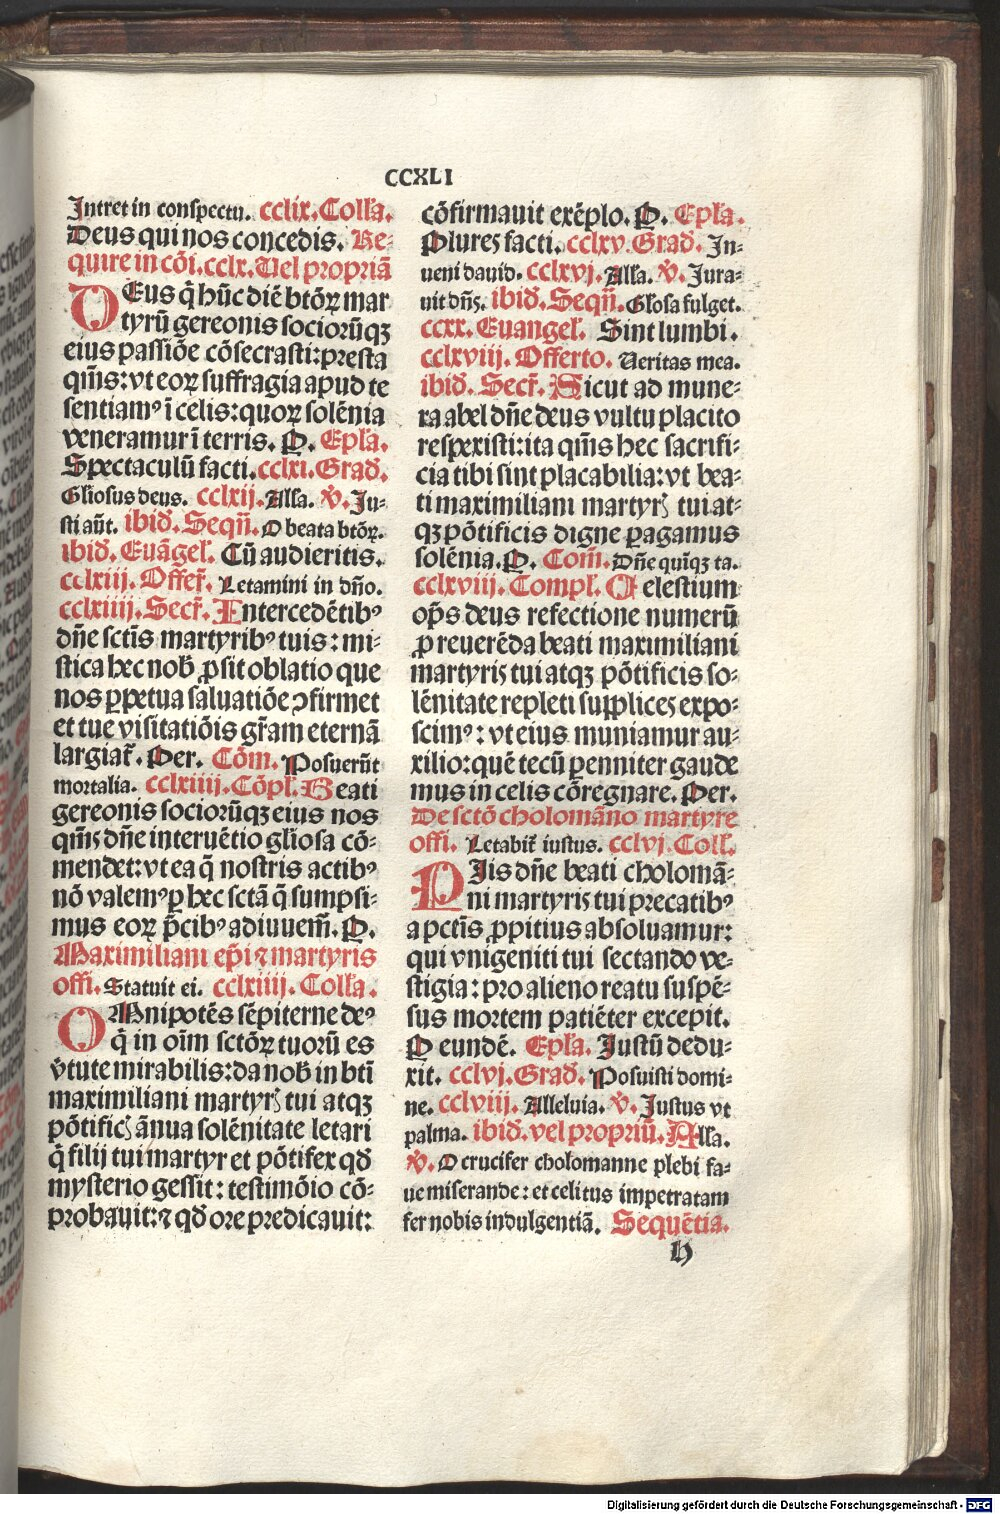 CCXLI
Intret in conspectu. cclix. Coll'a.
Deus qui nos concedis. Re-
quire in cōi. cclx. Uel propriā
DEus q̄ hūc diē btōꝝ mar
tyrū gereonis sociorūqꝫ
eius passiōe cōsecrasti: presta
qm̄s: vt eoꝝ suffragia apud te
sentiamꝰ ī celis: quoꝝ solēnia
veneramur ī terris. P. Epl'a.
Spectaculū facti. cclxi. Grad̄.
Gl'iosus deus. cclxij. All'a. v̄. Ju-
sti aūt. ibid̄. Seqn̄. O beata btōꝝ.
ibid̄. Euāgel'. Cū audieritis.
cclxiij. Offer̄. Letamini in dn̄o.
cclxiiij. Secr̄. Intercedētibꝰ
dn̄e sctīs martyribꝰ tuis: mi-
stica hec nob̄ ꝓsit oblatio que
nos ꝑpetua saluatiōe ꝯfirmet
et tue visitatiōis gr̄am eternā
largiat̄. Per. Cōm. Posuerūt
mortalia. cclxiiij. Cōpl'. Beati
gereonis sociorūqꝫ eius nos
qm̄s dn̄e interuētio gl'iosa cō-
mendet: vt ea q̄ nostris actibꝰ
nō valemꝰ ꝑ hec sctā q̄ sumpsi-
mus eoꝝ p̄cibꝰ adiuuem̄. P.
Maximiliani ep̄i ⁊ martyris
offi. Statuit ei. cclxiiij. Coll'a.
OMnipotēs sēpiterne deꝰ
q̄ in oīm sctōꝝ tuorū es
v̄tute mirabilis: da nob̄ in btī
maximiliani martyrꝭ tui atqꝫ
pōtificꝭ ānua solēnitate letari
q̄ filij tui martyr et pōtifex qd̄
mysterio gessit: testimōio cō-
probauit: ⁊ qd̄ ore predicauit:
cōfirmauit exēplo. P. Epl'a.
Plures facti. cclxv. Grad̄. In-
ueni dauid. cclxvj. All'a. v̄. Jura-
uit dn̄s. ibid̄. Seqn̄. Gl'osa fulget.
ccxx. Euangel'. Sint lumbi.
cclxviij. Offerto. Ueritas mea.
ibid̄. Secr̄. Sicut ad mune-
ra abel dn̄e deus vultu placito
respexisti: ita qm̄s hec sacrifi-
cia tibi sint placabilia: vt bea-
ti maximiliani martyrꝭ tui at-
qꝫ pōtificis digne peragamus
solēnia. P. Com̄. Dn̄e quīqꝫ ta.
cclxviij. Compl'. Celestium
op̄s deus refectione numerū
ꝓ reuerēda beati maximiliani
martyris tui atqꝫ pōtificis so-
lēnitate repleti supplices expo-
scimꝰ: vt eius muniamur au-
xilio: quē tecū perenniter gaude
mus in celis cōregnare. Per.
De sctō cholomāno martyre
offi. Letabit̄ iustus. cclvj. Coll'.
PIis dn̄e beati cholomā-
ni martyris tui precatibꝰ
a pctīs ꝓpitius absoluamur:
qui vnigeniti tui sectando ve-
stigia: pro alieno reatu suspē-
sus mortem patiēter excepit.
P eundē. Epl'a. Justū dedu-
xit. cclvj. Grad̄. Posuisti domi-
ne. cclviij. Alleluia. v̄. Justus vt
palma. ibid̄. vel propriū. All'a.
v̄. O crucifer cholomanne plebi fa-
ue miserande: et celitus impetratam
fer nobis indulgentiā. Sequētia.
h
Digitalisierung gefördert durch die Deutsche Forschungsgemeinschaft - DFG